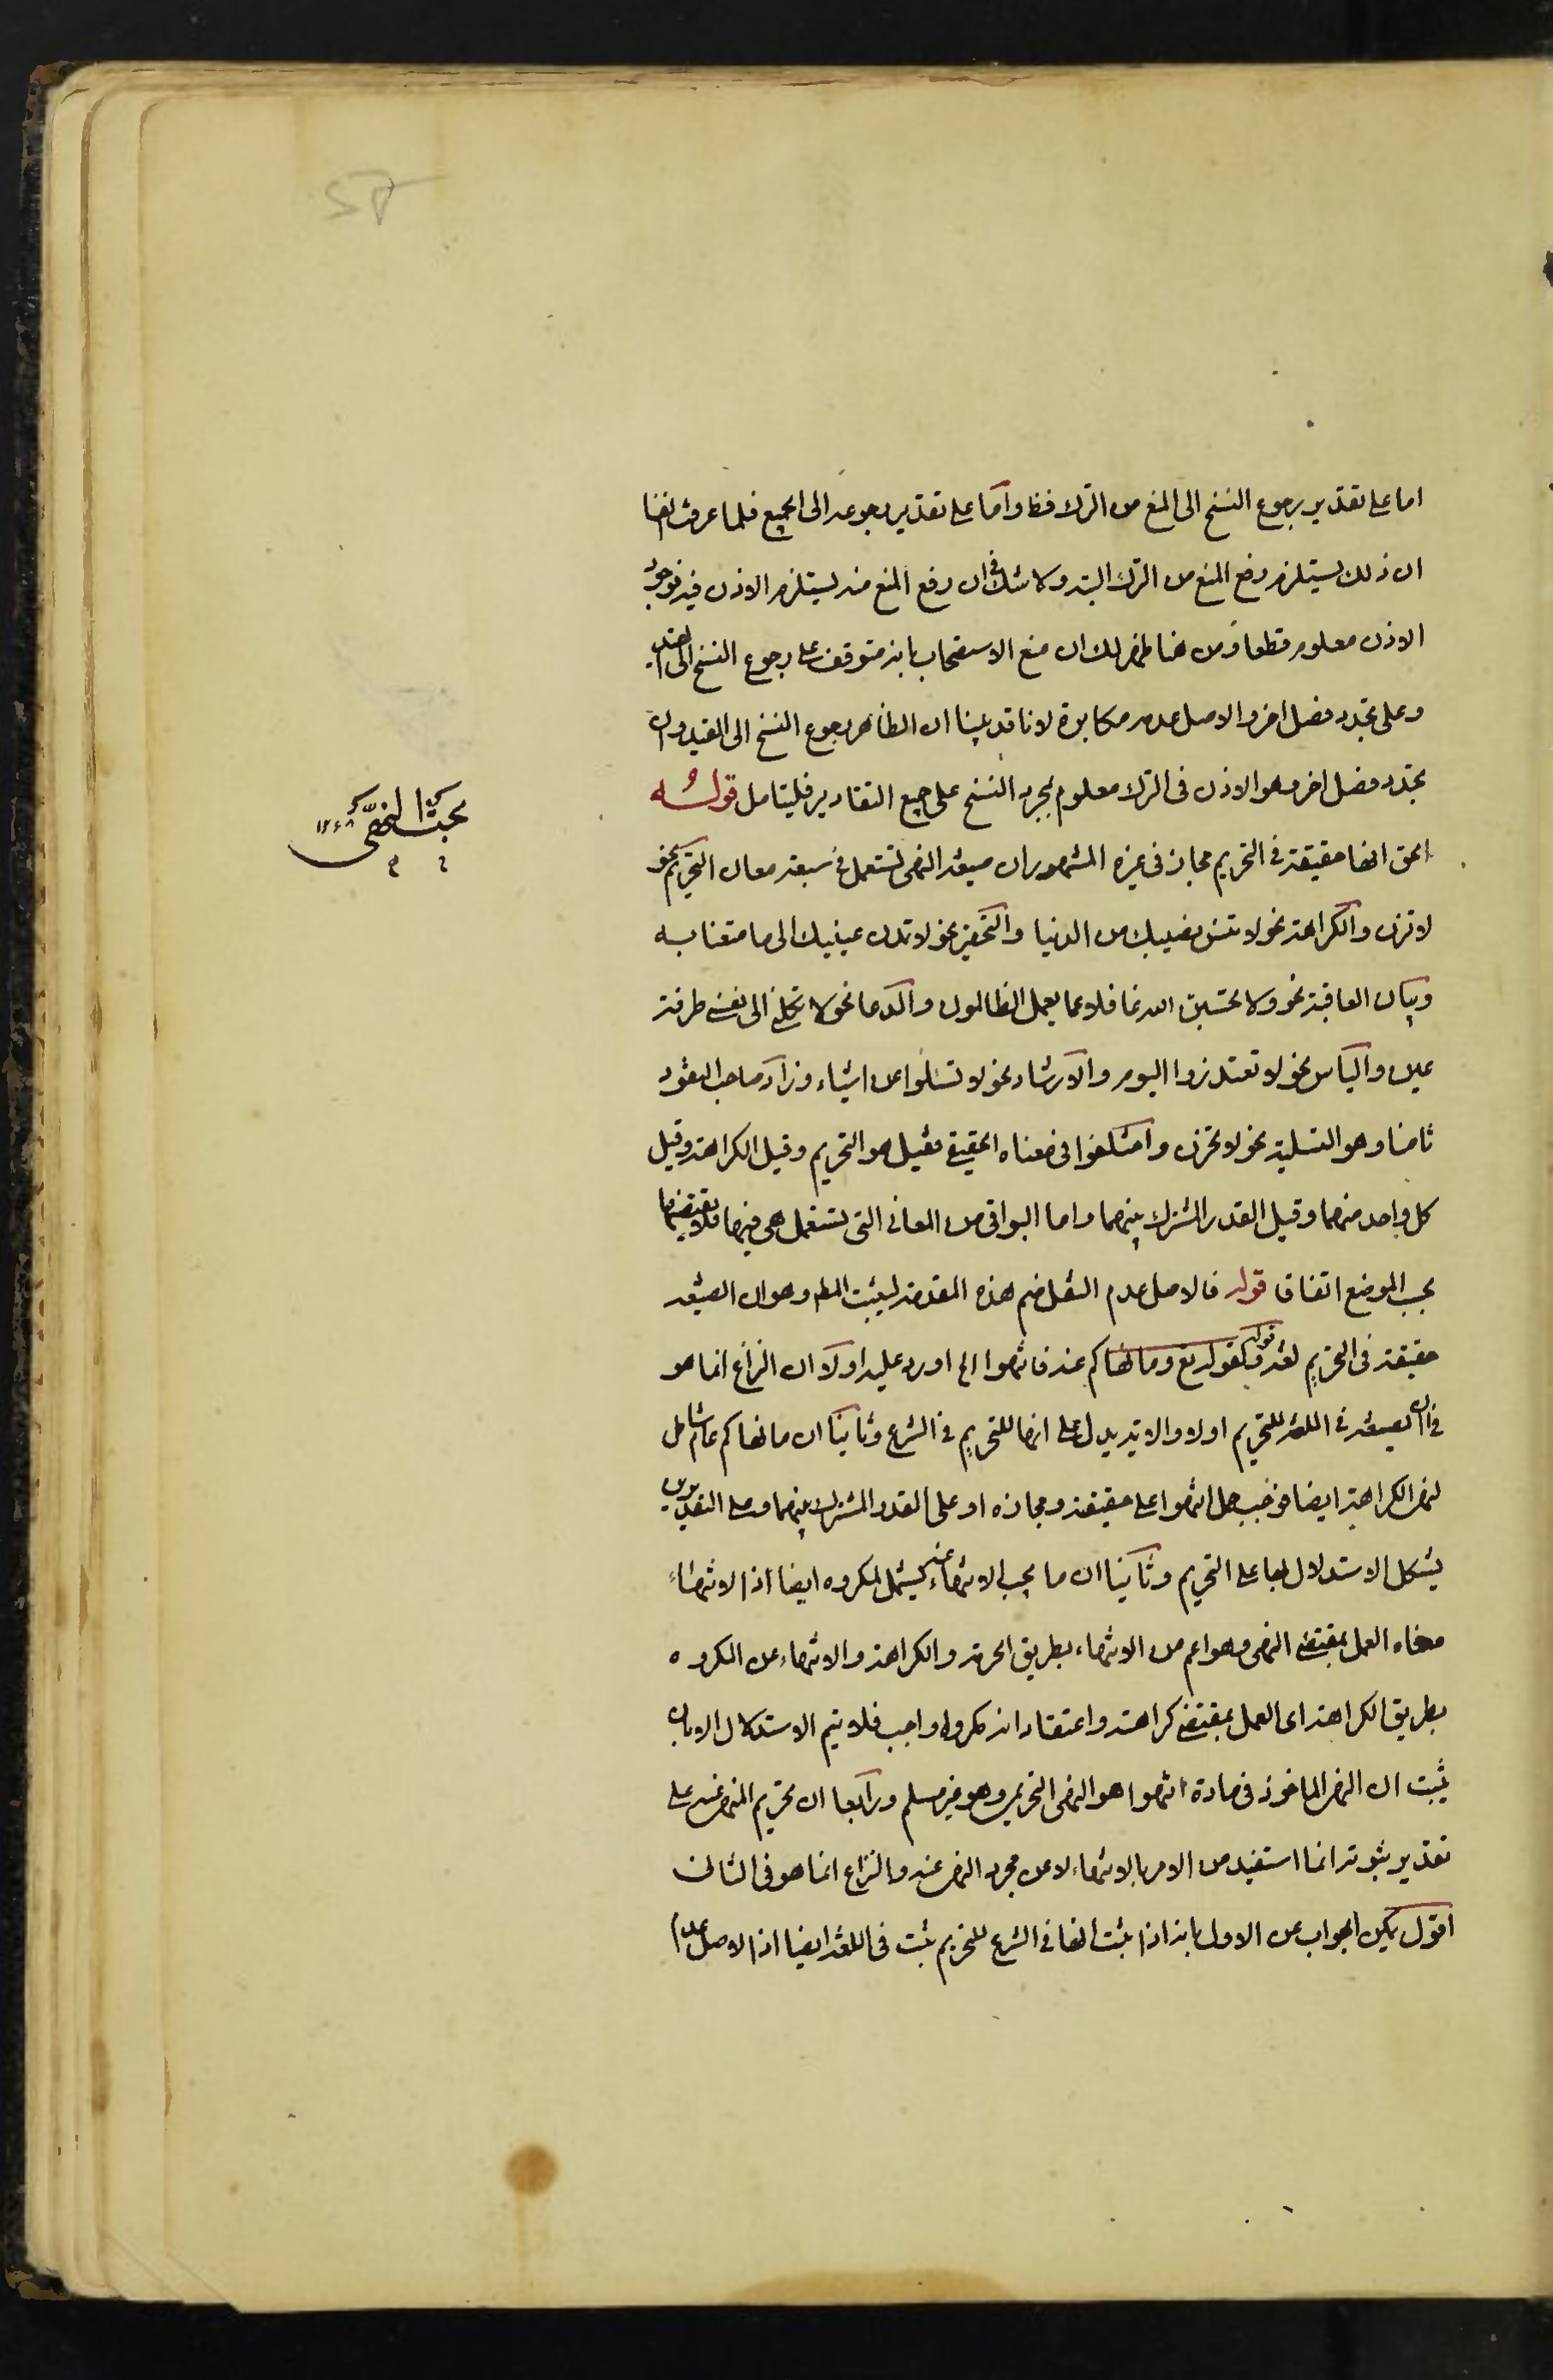 اما على تقدير رجوع النسخ الى المنع من الترك فظ واما على تقدير رجوعه الى الجميع فلما عرفت انفا
ان ذلك يستلزم رفع المنع من الترك البتة ولا شك فى ان رفع المنع منه يستلزم الاذن فيه فوجود
الاذن معلوم قطعا ومن هنا ظهر لك ان منع الاستصحاب بانه متوقف على رجوع النسخ الى القيد
وعلى تجدد فصل اخر والاصل عدمه مكابرة لانا قد بينا ان الظاهر رجوع النسخ الى القيد وان
تجدد فصل اخر وهو الاذن فى الترك معلوم بمجرد النسخ على جميع التقادير فليتامل قوله
الحق انها حقيقة فى التحريم مجاز فى غيره المشهور ان صيغة النهى تستعمل فى سبعة معان التحريم نحو
لا تزن والكراهة نحو لا تنس نصيبك من الدنيا والتحقير نحو لا تمدن عينيك الى ما متعنا به
وبيان العاقبة نحو ولا تحسبن الله غافلا عما يعمل الظالمون والدعا نحو لا تكلنى الى نفسى طرفة
عين والياس نحو لا تعتذروا اليوم والارشاد نحو لا تسئلوا عن اشياء وزاد صاحب العقود
ثامنا وهو التسلية نحو لا تحزن واختلفوا فى معناه الحقيقى فقيل هو التحريم وقيل الكراهة وقيل
كل واحد منهما وقيل القدر المشترك بينهما واما البواقى من المعانى التى تستعمل هى فيها فلا يقتضيها
بحسب الوضع اتفاقا قوله فالاصل عدم النقل ضم هذه المقدمة ليثبت المط وهو ان الصيغة
حقيقة فى التحريم لغة قوله وكقوله تع وما نهاكم عنه فانتهوا الخ اورد عليه اولا ان النزاع انما هو
فى ان الصيغة فى اللغة للتحريم اولا والاية يدل على انها للتحريم فى الشرع وثانيا ان ما نهاكم عام شامل
لنهى الكراهة ايضا فوجب حمل انتهوا على حقيقته ومجازه او على القدر المشترك بينهما وعلى التقديرين
يشكل الاستدلال بها على التحريم وثالثا ان ما يجب الانتهاء عنه يشمل المكروه ايضا اذ الانتهاء
معناه العمل بمقتضى النهى وهو اعم من الانتهاء بطريق الحرمة والكراهة والانتهاء عن المكروه
بطريق الكراهة اى العمل بمقتضى كراهته واعتقاد انه مكروه واجب فلا يتم الاستدلال الا بان
يثبت ان النهى الماخوذ فى مادة انتهوا هو النهى التحريمى وهو غير مسلم ورابعا ان تحريم المنهى عنه على
تقدير ثبوته انما استفيد من الامر بالانتهاء لا عن مجرد النهى عنه والنزاع انما هو فى الثانى
اقول يمكن الجواب عن الاول بانه اذا ثبت انها فى الشرع للتحريم ثبت فى اللغة ايضا اذ الاصل عدم